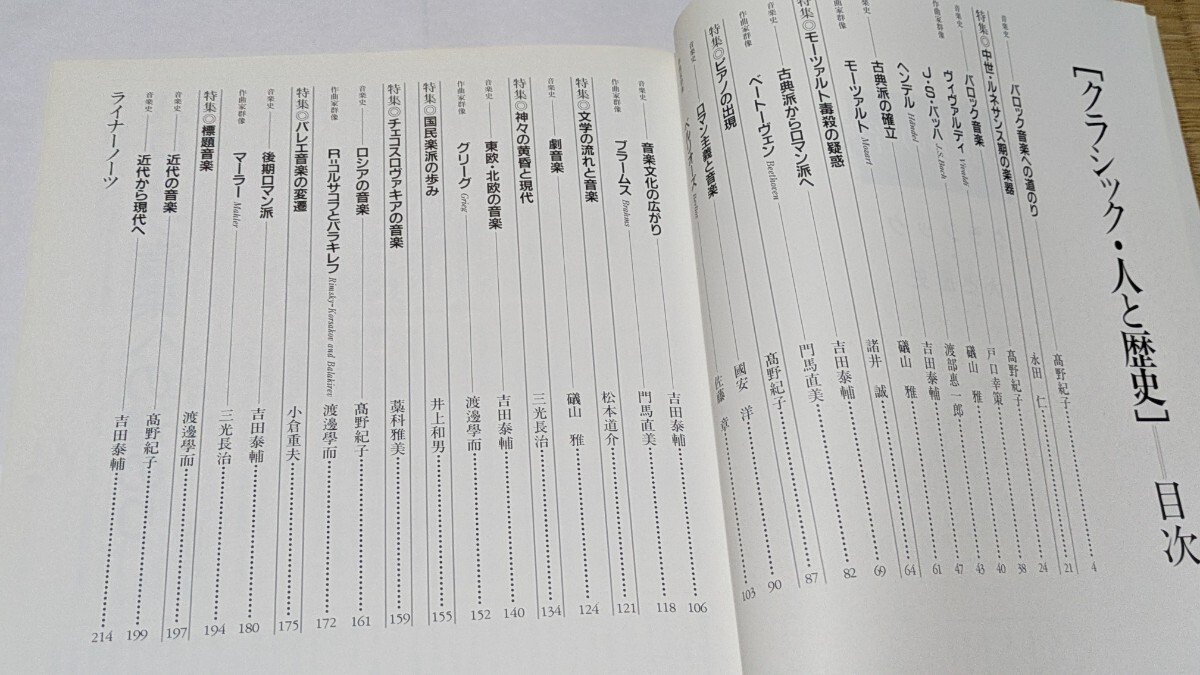 [クラシック・人と歴史]══目次
音楽史 バロック音楽への道のり 高野紀子 4
特集◎中世・ルネサンス期の楽器 永田 仁 21
音楽史 バロック音楽 高野紀子 24
ヴィヴァルディ Vivaldi 戸口幸策 38
J・S・バッハ J.S.Bach 礒山 雅 40
作曲家群像 ヘンデル Händel 渡部惠一郎 43
音楽史 古典派の確立 吉田泰輔 47
モーツァルト Mozart 礒山 雅 61
特集◎モーツァルト毒殺の疑惑 諸井 誠 64
音楽史 古典派からロマン派へ 吉田泰輔 69
作曲家群像 ベートーヴェン Beethoven 門馬直美 82
特集◎ピアノの出現 高野紀子 87
音楽史 ロマン主義と音楽 國安 洋 90
佐藤 章 103
音楽史 音楽文化の広がり 吉田泰輔 106
作曲家群像 ブラームス Brahms 門馬直美 118
特集◎文学の流れと音楽 松本道介 121
音楽史 劇音楽 礒山 雅 124
特集◎神々の黄昏と現代 三光長治 134
音楽史 東欧・北欧の音楽 吉田泰輔 140
作曲家群像 グリーグ Grieg 渡邊學而 152
特集◎国民楽派の歩み 井上和男 155
特集◎チェコスロヴァキアの音楽 藁科雅美 159
音楽史 ロシアの音楽 高野紀子 161
作曲家群像 R=コルサコフとバラキレフ Rimsky-Korsakov and Balakirev 渡邊學而 172
特集◎バレエ音楽の変遷 小倉重夫 175
音楽史 後期ロマン派 吉田泰輔 180
作曲家群像 マーラー Mahler 三光長治 194
特集◎標題音楽 渡邊學而 197
音楽史 近代の音楽 高野紀子 199
音楽史 近代から現代へ 吉田泰輔 214
ライナーノーツ